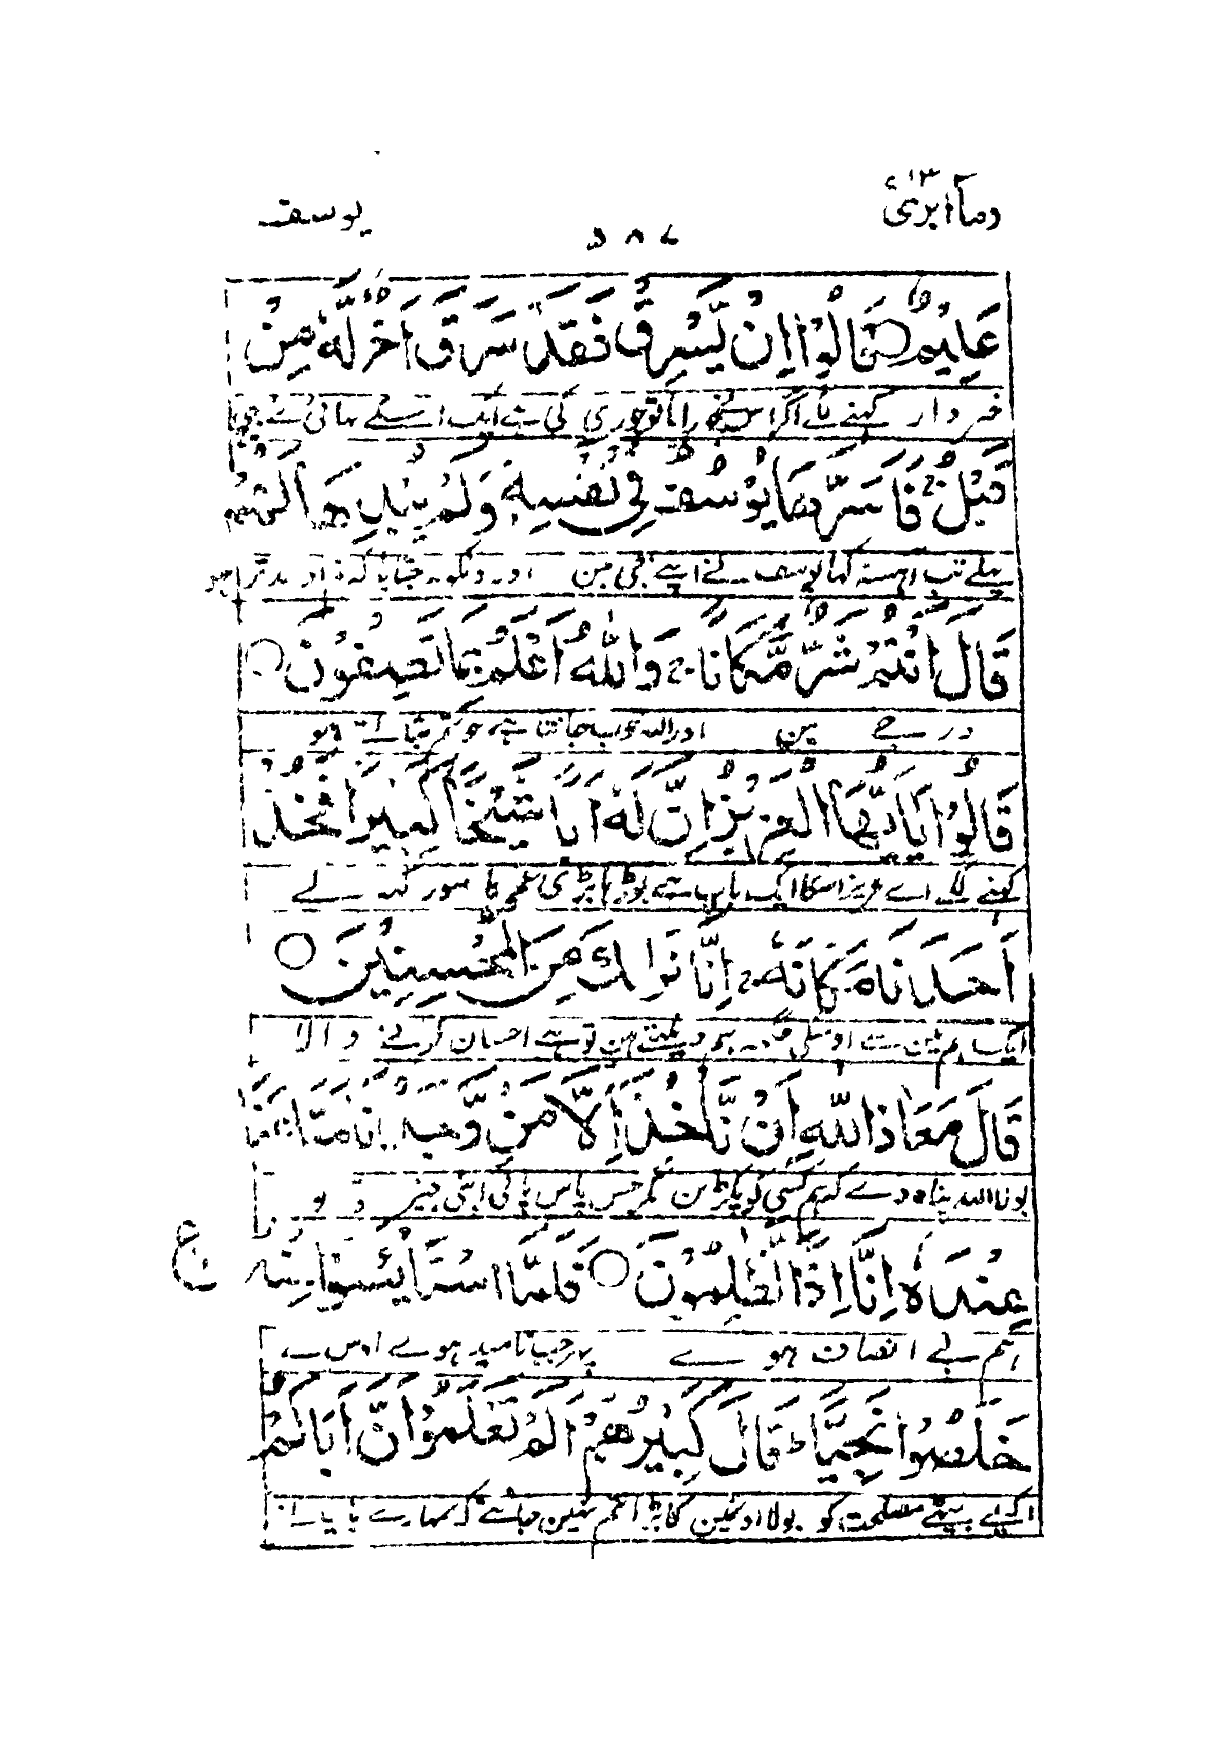 ومآ ابرئ ١٣
٥٨٧
يوسف
عَلِيْمٌ ○ قَالُوْٓا اِنْ يَّسْرِقْ فَقَدْ سَرَقَ اَخٌ لَّهٗ مِنْ
خبر دار کہنے لگے اگر اس نے چورایا تو چوری کی ہے ایک اسکے بهائی نے بهی
قَبْلُ ج فَاَسَرَّهَا يُوْسُفُ فِيْ نَفْسِهٖ وَلَمْ يُبْدِهَا لَهُمْ
پہلے تب آہستہ کہا یوسف نے اپنے جی مین اور ونکو نہ جتایا کہ
قَالَ اَنْتُمْ شَرٌّ مَّكَانًا ج وَاللّٰهُ اَعْلَمُ بِمَا تَصِفُوْنَ ○
درجے مین اور اللہ خوب جانتا ہے جو تم بتاتے ہو
قَالُوْا يَا اَيُّهَا الْعَزِيْزُ اِنَّ لَهٗٓ اَبًا شَيْخًا كَبِيْرًا فَخُذْ
کہنے لگے اے عزیز اسکا ایک باپ ہے بوڑہا بڑی عمر کا سو رکہہ لے
اَحَدَنَا مَكَانَهٗ ج اِنَّا نَرَاكَ مِنَ الْمُحْسِنِيْنَ ○
ایک ہم مین سے اوسکی جگہہ ہم دیکہتے ہین تو ہے احسان کرنے والا
قَالَ مَعَاذَ اللّٰهِ اَنْ نَّاْخُذَ اِلَّا مَنْ وَّجَدْنَا مَتَاعَنَا
بولا اللہ پناہ دے کہ ہم کسی کو پکڑین مگر جس پاس پائی اپنی چیز تو
عِنْدَهٗٓ اِنَّآ اِذًا لَّظٰلِمُوْنَ ○ فَلَمَّا اسْتَايْئَسُوْا مِنْهُ
ع
ہم بے انصاف ہوے پہر جب نا امید ہوے اوس سے
خَلَصُوْا نَجِيًّا ط قَالَ كَبِيْرُهُمْ اَلَمْ تَعْلَمُوْٓا اَنَّ اَبَاكُمْ
اکیلے بیٹہے مصلحت کو بولا اونمین کا بڑا تم نہین جانتے کہ تمہارے باپ نے